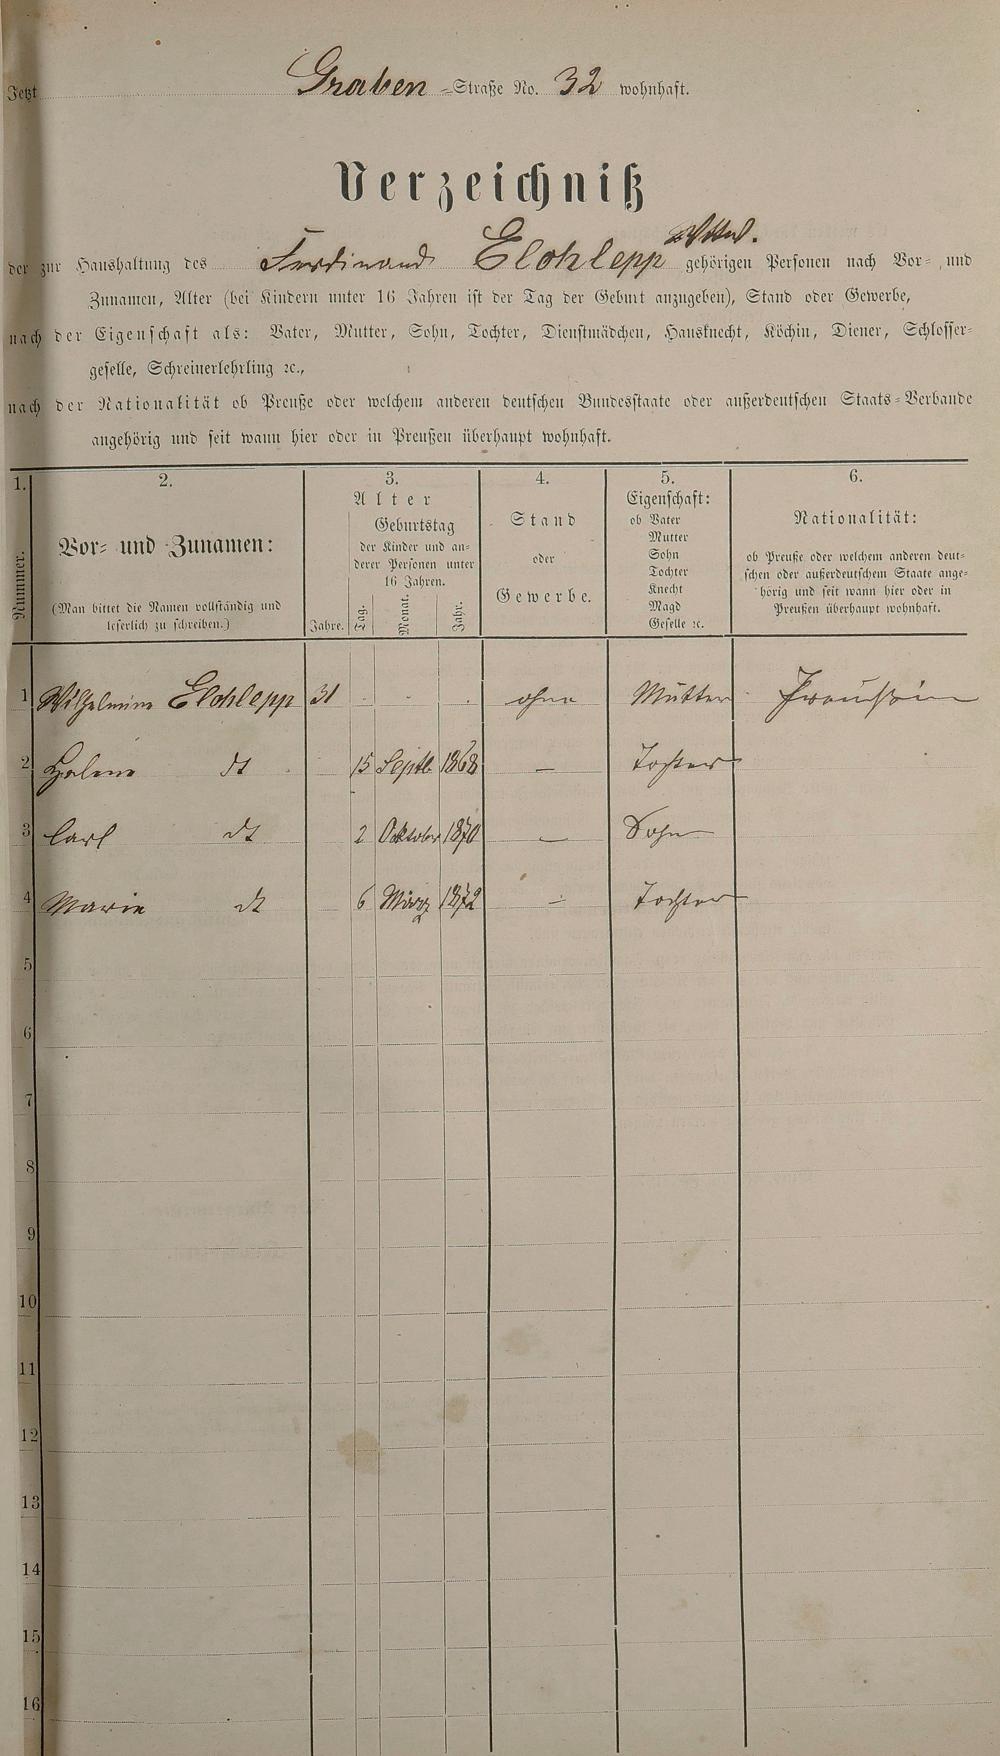 Jetzt Graben -Straße No. 32 wohnhaft.
Verzeichniß
Wttw.
der zur Haushaltung des Ferdinand Elchlepp gehörigen Personen nach Vor- und
Zunamen, Alter (bei Kindern unter 16 Jahren ist der Tag der Geburt anzugeben), Stand oder Gewerbe,
nach der Eigenschaft als: Vater, Mutter, Sohn, Tochter, Dienstmädchen, Hausknecht, Köchin, Diener, Schlosser-
geselle, Schreinerlehrling ꝛc.,
nach der Nationalität ob Preuße oder welchem anderen deutschen Bundesstaate oder außerdeutschen Staats-Verbande
angehörig und seit wann hier oder in Preußen überhaupt wohnhaft.
1. 2. 3. 4. 5. 6.
Nummer.
Vor- und Zunamen:
(Man bittet die Namen vollständig und
leserlich zu schreiben.)
Alter
Geburtstag
der Kinder und an-
derer Personen unter
16 Jahren.
Jahre. Tag. Monat. Jahr.
Stand
oder
Gewerbe.
Eigenschaft:
ob Vater
Mutter
Sohn
Tochter
Knecht
Magd
Geselle ꝛc.
Nationalität:
ob Preuße oder welchem anderen deut-
schen oder außerdeutschem Staate ange-
hörig und seit wann hier oder in
Preußen überhaupt wohnhaft.
1 Wilhelmine Elchlepp 31 - - - ohne Mutter Preussin
2 Helene dt 15 Septb 1868 — Tochter
3 Carl dt 2 Oktober 1870 — Sohn
4 Marie dt 6 März 1872 — Tochter
5
6
7
8
9
10
11
12
13
14
15
16